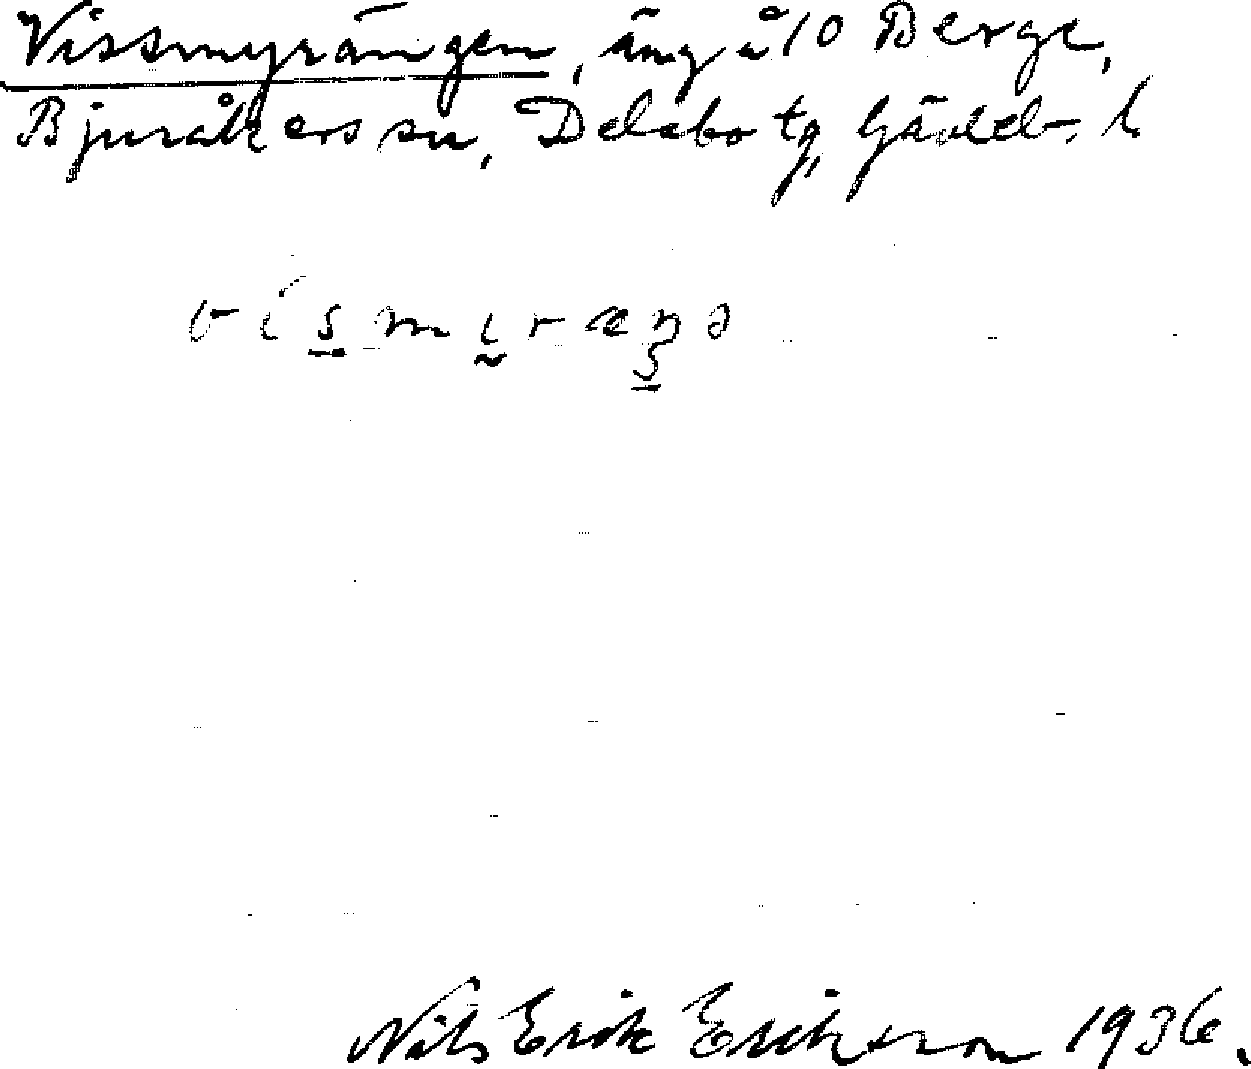 Vissmyrängen, äng å 10 Berge,
Bjuråkers sn, Delsbo tg, Gävleb. l
Nils Erik Eriksson 1936.